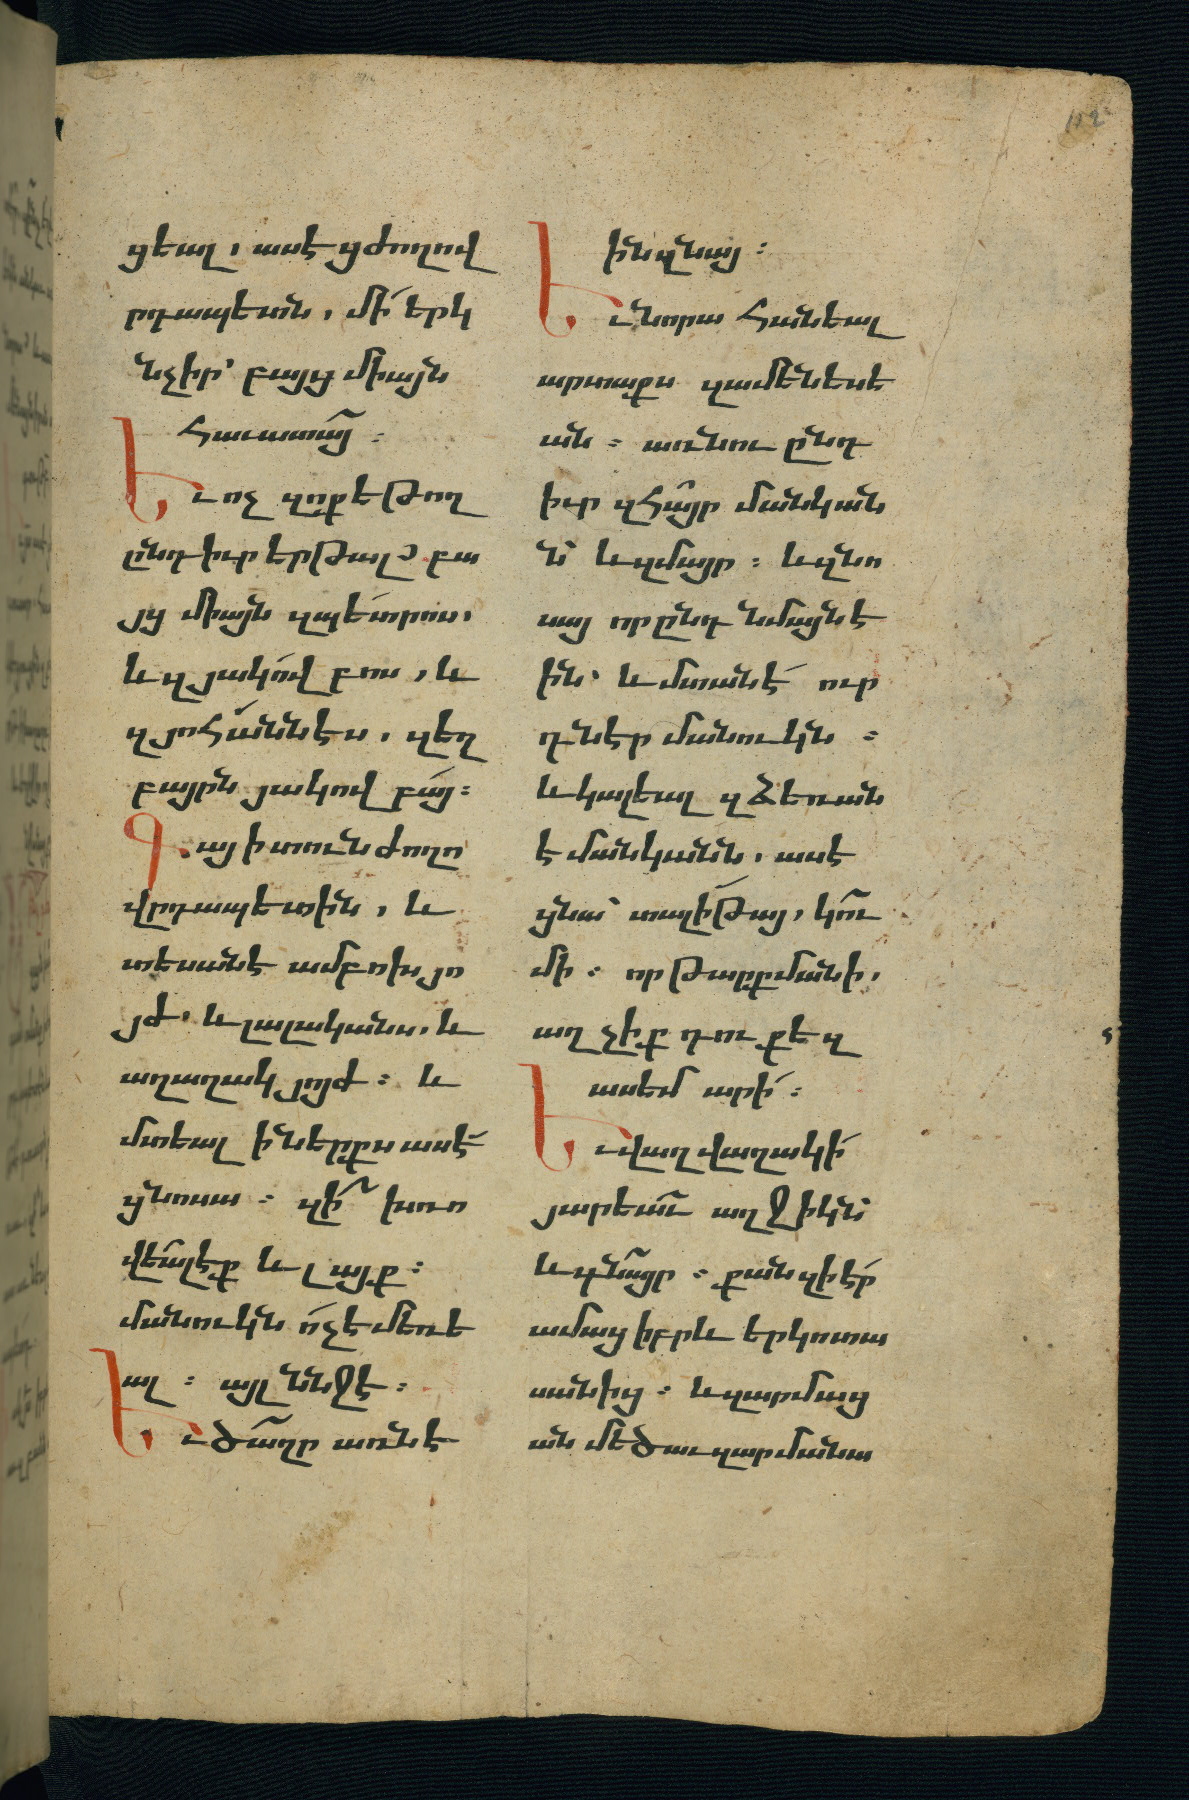 112
ցեալ, ասէ ցժողով
րդապետն, մի՛ երկ
նչիր՝ բայց միայն
հաւատայ։
Եւ ոչ զոք եթող
ընդ իւր երթալ. բա
յց միայն զպետրոս,
և զյակովբոս, և
զյոհաննէս, զեղ
բայրն յակովբայ։
Գայ ի տուն ժողո
վրդապետին, և
տեսանէ ամբոխ յո
յժ, և լալականս, և
աղաղակ յոյժ։ և
մտեալ ի ներքս ասէ
ցնոսա։ զի՞ խռո
վեալէք և լայք։
մանուկն ո՛չ է մեռե
ալ։ այլ ննջէ։
Եւ ծաղր առնէ
ին զնայ։
Եւ նորա հանեալ
արտաքս զամենեսե
ան։ առնու ընդ
իւր զհայր մանկան
ն՝ և զմայր։ և զնո
սայ որ ընդ նմայն է
ին՝ և մտանէ ուր
դնէր մանուկն։
և կալեալ զձեռան
է մանկանն, ասէ
ցնա՝ տալիթայ, կու
մի։ որ թարքմանի,
աղջիք դու քեզ
ասեմ արի՛։
Եւ վաղվաղակի
յարեաւ աղջիկն՝
և գնայր։ քանզի էր
ամաց իբրև երկոտա
սանից։ և զարմաց
ան մեծաւ զարմանա